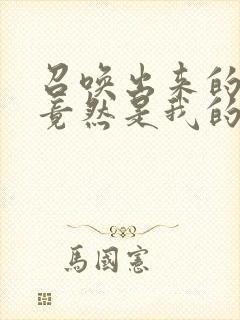 召唤出来的
竟然是我的
馬國憲